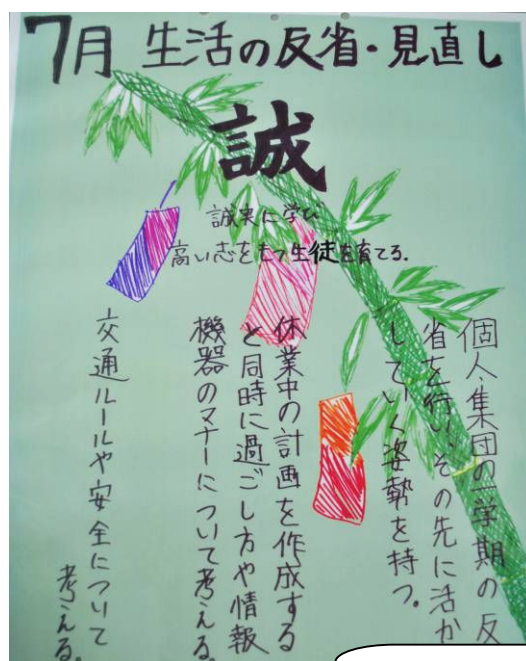 7月 生活の反省・見直し
誠
誠実に学び
高い志をもつ生徒を育てる.
個人、集団の一学期の反
省を行い、その先に活か
していく姿勢を持つ。
休業中の計画を作成する
と同時に過ごし方や情報
機器のマナーについて考える。
交通ルールや安全について
考える。